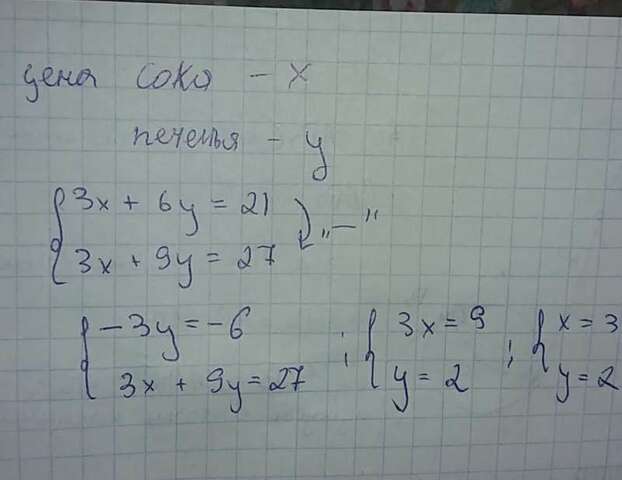 цена сока - x
печенья - y
{ 3x + 6y = 21
{ 3x + 9y = 27 „—"
{ -3y = -6 ; { 3x = 9 ; { x = 3
{ 3x + 9y = 27 { y = 2 { y = 2